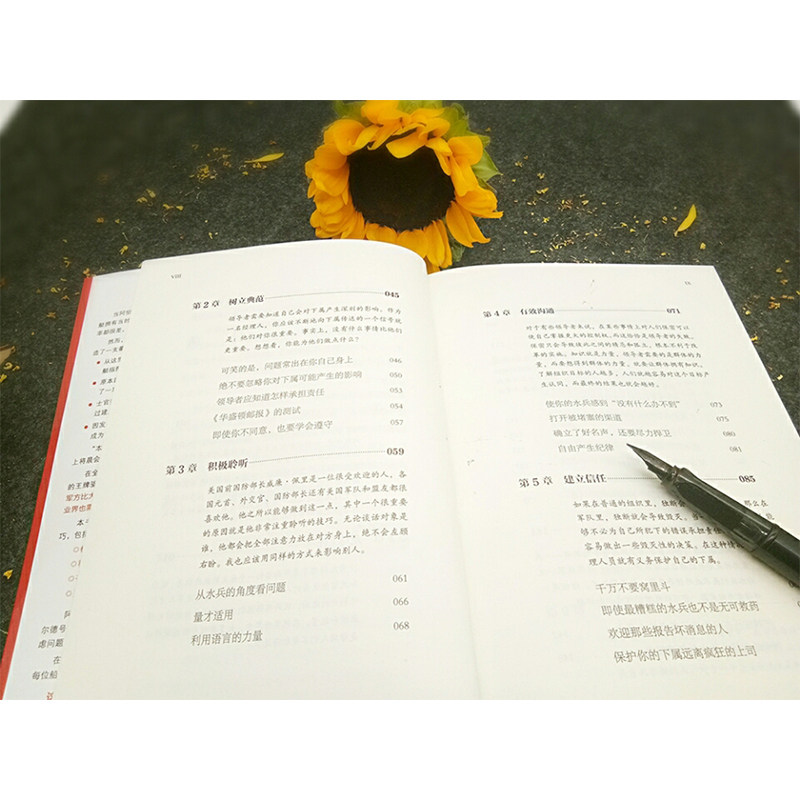 VIII
第2章 树立典范 045
领导者需要知道自己会对下属产生深刻的影响。作为
一名经理人，您应该不断地向下属传达的一个信号就
是：他们对您很重要。事实上，没有什么事情比她们
更重要。想想看，您能为他们做点什么？
可笑的是，问题常出在你自己身上 046
绝不要忽略你对下属可能产生的影响 050
领导者应知道怎样承担责任 053
《华盛顿邮报》的测试 054
即使你不同意，也要学会遵守 057
第3章 积极聆听 059
美国前国防部长威廉·佩里是一位很受欢迎的人，各
国元首、外交官、国防部长还有美国军队和盟友都很
喜欢他。他之所以能够做到这一点，其中一个很重要
的原因就是他非常注重聆听的技巧。无论谈话对象是
谁，他都会把全部注意力放在对方身上，绝不会左顾
右盼。我也应该用同样的方式来影响别人。
从水兵的角度看问题 061
量才适用 066
利用语言的力量 068
IX
第4章 有效沟通 071
对于有些领导者来说，在某些事情上对人们保密可以
使自己掌握更大的控制权。而这恰恰是领导者的失败。
保密只会导致彼此之间的隔离和孤立，根本不利于改
革的实施。知识就是力量，领导者需要的是群体的力
量，而要想得到群体的力量，就要让群体拥有知识。
了解组织目标的人越多，人们就越容易对这个目标产
生认同，而最终的结果也就会越好。
使你的水兵感到“没有什么办不到” 073
打开被堵塞的渠道 075
确立了好名声，还要尽力捍卫 080
自由产生纪律 081
第5章 建立信任 085
如果在普通的组织里，独断会
军队里，独断就会导致毁灭。
够不必为自己所犯下的错误承担责任
容易做出一些毁灭性的决策。在这种
理人员就有义务保护自己的下属。
千万不要窝里斗
即使最糟糕的水兵也不是无可救药
欢迎那些报告坏消息的人
保护你的下属远离疯狂的上司